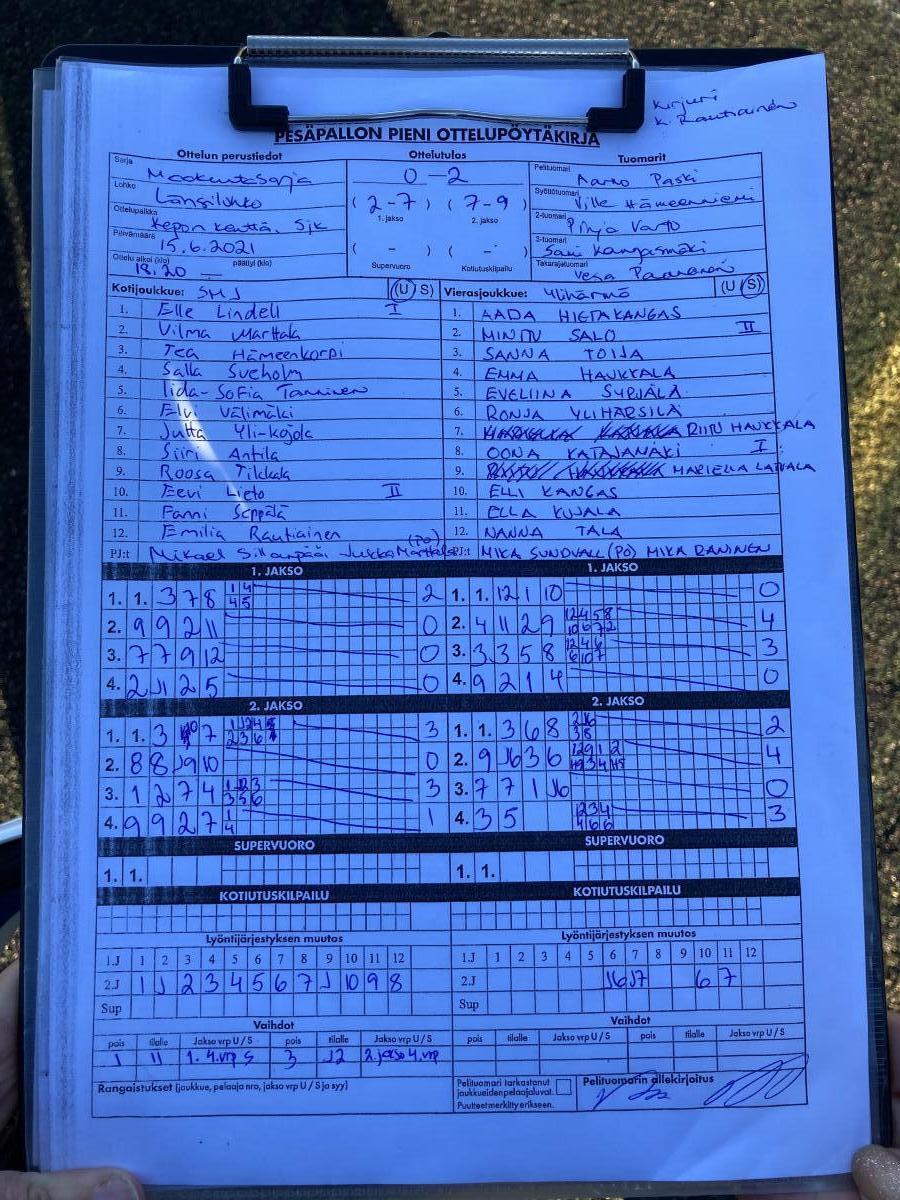 Kirjuri
K. Rautiainen
PESÄPALLON PIENI OTTELUPÖYTÄKIRJA
Ottelun perustiedot Ottelutulos Tuomarit
Sarja Maakuntasarja 0 - 2 Pelituomari Aarno Paski
Lohko Länsilohko (2-7) (7-9) Syöttötuomari Ville Hämeenniemi
1. jakso 2. jakso
Ottelupaikka Kepon kenttä, Sjk 2-tuomari Pinja Varto
Päivämäärä 15.6.2021 ( - ) ( - ) 3-tuomari Sami Kangasmäki
Ottelu alkoi (klo) 18.20 päättyi (klo) Supervuoro Kotiutuskilpailu Takarajatuomari Vesa
Kotijoukkue: SMJ (U S) Vierasjoukkue: Ylihärmä (U S)
1. Elle Lindell I 1. AADA HIETAKANGAS
2. Vilma Marttala 2. MINTTU SALO II
3. Tea Hämeenkorpi 3. SANNA TOIJA
4. Salla Sveholm 4. EMMA HAUKKALA
5. Iida-Sofia Tanninen 5. EVELIINA SYRJÄLÄ
6. Elvi Välimäki 6. RONJA YLIHÄRSILÄ
7. Jutta Yli-Kojola 7. RIITU HAUKKALA
8. Siiri Antila 8. OONA KATAJAMÄKI I
9. Roosa Tikkala 9. MARIELLA LATVALA
10. Eevi Lieto II 10. ELLI KANGAS
11. Fanni Seppälä 11. ELLA KUJALA
12. Emilia Rautiainen 12. NANNA TALA
PJ:t Mikael Sillanpää Jukka Marttala (PO) PJ:t MIKA SUNDVALL (PO) MIKA RANINEN
1. JAKSO 1. JAKSO
1. 1. 3 7 8 1 4 2 1. 1. 12 1 10 0
4 5
2. 9 9 2 11 0 2. 4 11 2 9 12 4 5 8 4
10 6 7 2
3. 7 7 9 12 0 3. 3 3 5 8 12 4 6 3
6 10 7
4. 2 J1 2 5 0 4. 9 2 1 4 0
2. JAKSO 2. JAKSO
1. 1. 3 7 3 1. 1. 3 6 8 2 2
2 3 6 3 8
2. 8 8 J9 10 0 2. 9 J6 3 6 12 9 1 2 4
3. 1 2 7 4 3 3. 7 7 1 J6 0
3 5 6
4. 9 9 2 7 1 1 4. 3 5 12 3 4 3
4 4 6 6
SUPERVUORO SUPERVUORO
1. 1. 1. 1.
KOTIUTUSKILPAILU KOTIUTUSKILPAILU
Lyöntijärjestyksen muutos Lyöntijärjestyksen muutos
1.J 1 2 3 4 5 6 7 8 9 10 11 12 1.J 1 2 3 4 5 6 7 8 9 10 11 12
2.J 1 J 2 3 4 5 6 7 J 10 9 8 2.J J6 J7 6 7
Sup Sup
Vaihdot Vaihdot
pois tilalle Jakso vrp U / S pois tilalle Jakso vrp U / S pois tilalle Jakso vrp U / S pois tilalle Jakso vrp U / S
1 11 1. 4.vrp S 3 J2 2.jakso 4.vrp
Rangaistukset (joukkue, pelaaja nro, jakso vrp U / S ja syy) Pelituomari tarkastanut joukkueiden pelaajaluvat. Pelituomarin allekirjoitus
Puutteet merkitty erikseen.